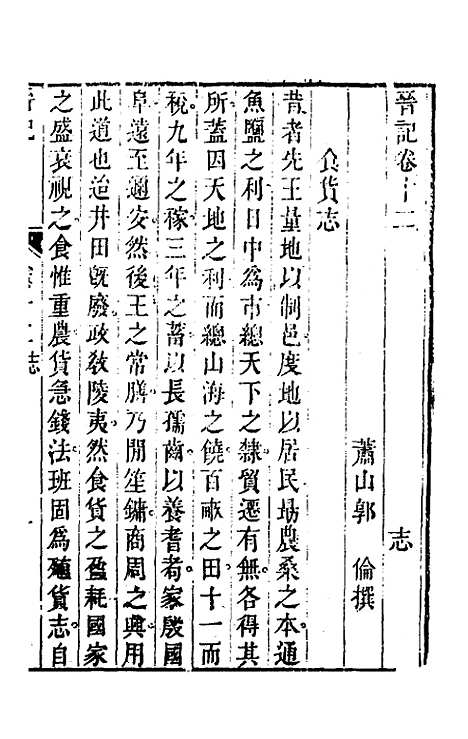 晉記卷十二
志
蕭山郭　倫撰
食貨志
昔者先王量地以制邑度地以居民勗農桑之本通
魚鹽之利日中爲市總天下之隸貿遷有無各得其
所蓋因天地之利而總山海之饒百畝之田十一而
稅九年之稼三年之蓄以長孺齒以養耆耈家殷國
阜遠至邇安然後王之常膳乃間笙鏞商周之興用
此道也迨井田旣廢政敎陵夷然食貨之盈耗國家
之盛衰視之食惟重農貨急錢法班固爲殖貨志自